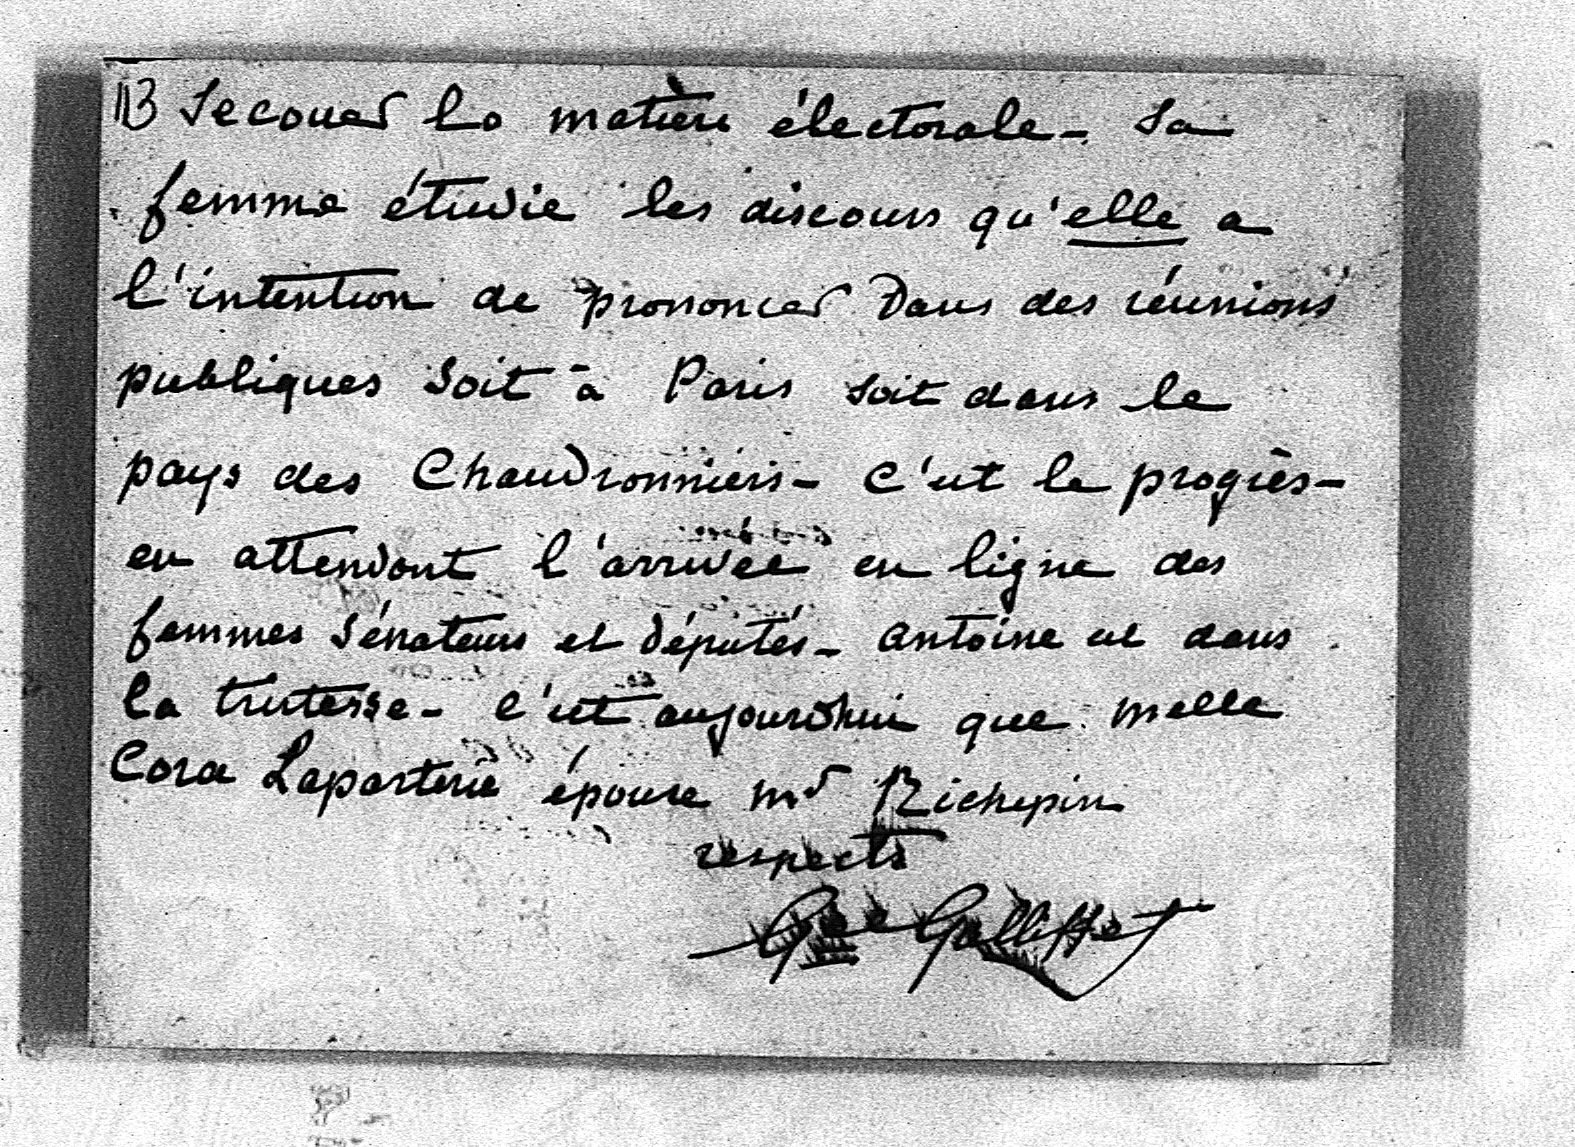 Secouer la matière électorale - Sa
femme étudie les discours qu'elle a
l'intention de prononcer Dans des réunions
publiques soit à Paris soit dans le
pays des Chaudronniers - C'est le progrès -
en attendant l'arrivée en ligne des
femmes sénateurs et députés - Antoine est dans
la tristesse - C'est aujourdhui que Melle
Cora Laparterie épouse Mr Richepin
respects
Gal Galliffet